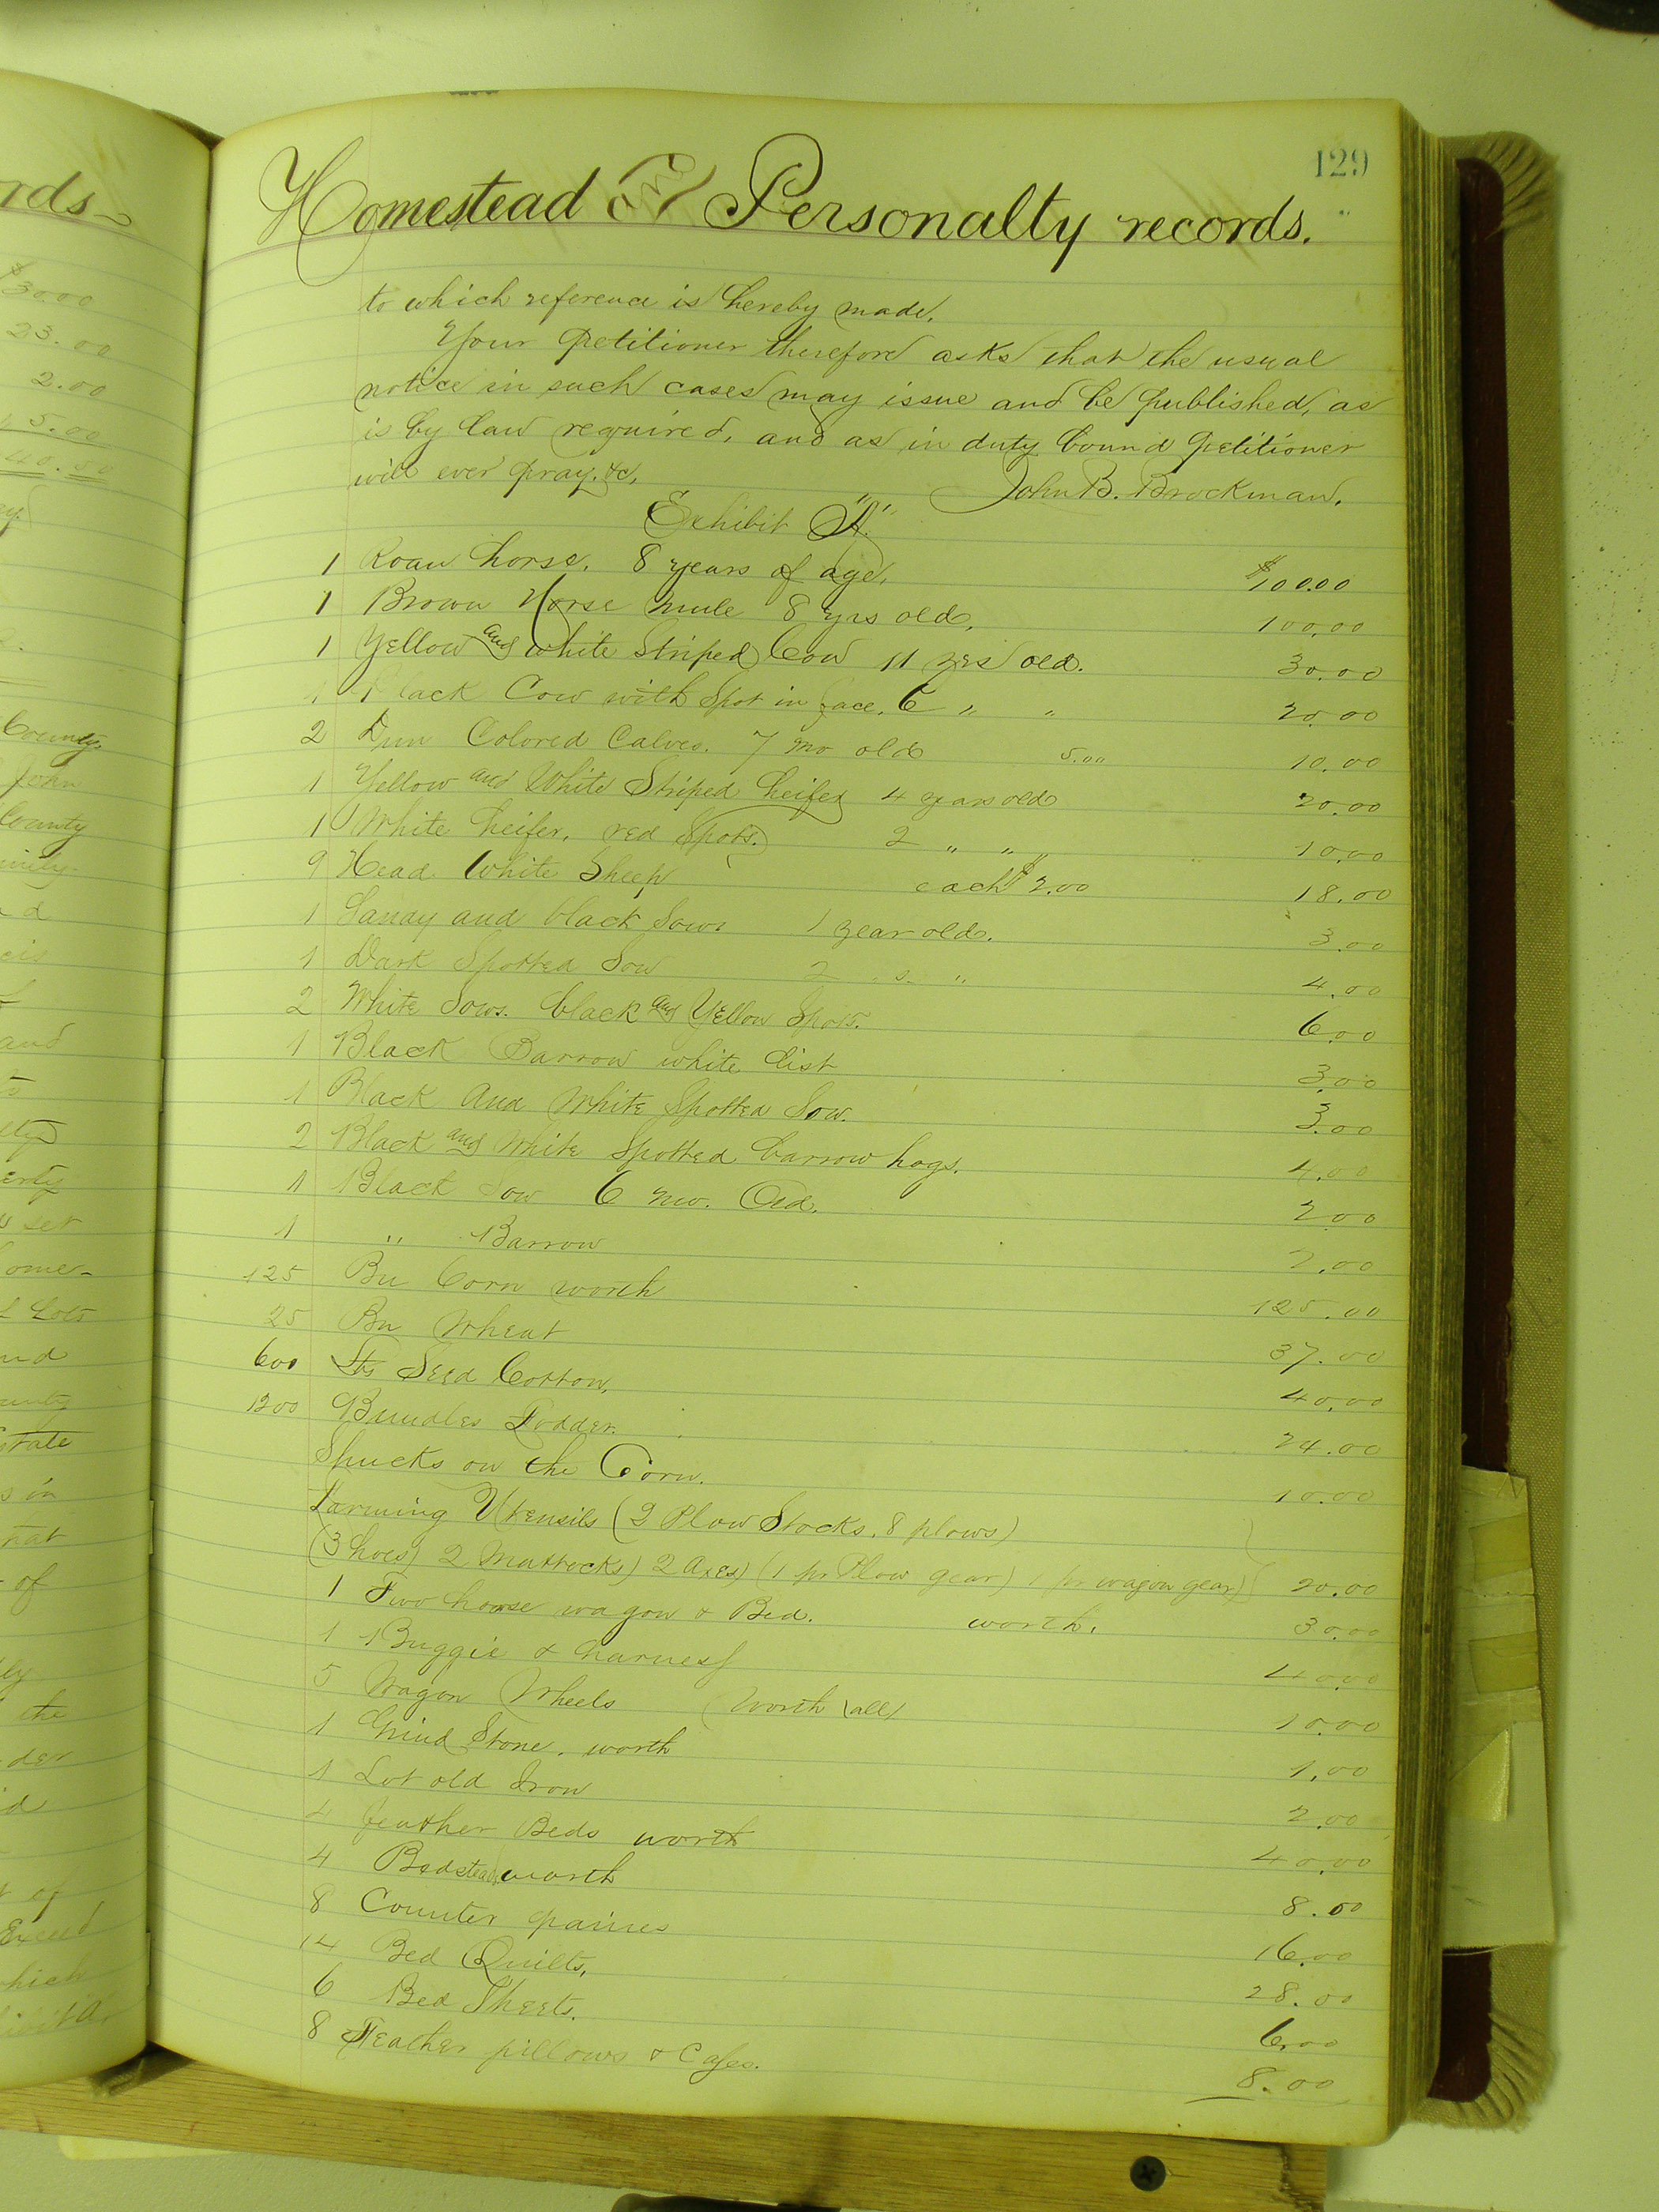 rds
$30.00
23.00
2.00
5.00
40.50
County
John
County
and
erty
set
ome-
Lots
State
s in
hat
of
the
der
of
Exceed
hich
129
Homestead and Personalty records.
to which reference is hereby made.
Your petitioner therefore asks that the usual
notice in such cases may issue and be published, as
is by law required, and as in duty bound petitioner
will ever pray. &c.
John B. Brockman.
Exhibit "A"
1 Roan horse. 8 years of age. $100.00
1 Brown Horse mule 8 yrs old. 100.00
1 Yellow and white Striped Cow 11 yrs old. 30.00
1 Black Cow with Spot in face. 6 " " 20.00
2 Dun Colored Calves. 7 mo old 5.00 10.00
1 Yellow and White Striped heifer 4 years old 20.00
1 White heifer. red Spots. 2 " " 10.00
9 Head White Sheep each $2.00 18.00
1 Sanday and black Sow 1 year old. 3.00
1 Dark Spotted Sow 2 " " 4.00
2 White Sows. black and Yellow Spots. 6.00
1 Black Barrow white list 3.00
1 Black and White Spotted Sow. 3.00
2 Black and White Spotted barrow hogs. 4.00
1 Black Sow 6 mo. Old. 2.00
1 " Barrow 2.00
125 Bu Corn worth 125.00
25 Bu Wheat 37.00
600 lbs Seed Cotton. 40.00
1200 Bundles Fodder. 24.00
Shucks on the Corn. 10.00
Farming Utensils (2 Plow Stocks, 8 plows)
(3 hoes) 2 Mattocks) 2 Axes) (1 pr Plow gear) 1 pr wagon gear) 20.00
1 Two horse wagon & Bed. worth. 30.00
1 Buggie & harness 40.00
5 Wagon Wheels (Worth (all) 10.00
1 Grind Stone. worth 1.00
1 Lot old Iron 2.00
4 feather Beds worth 40.00
4 Bedsteads worth 8.00
8 Counter paines 16.00
14 Bed Quilts, 28.00
6 Bed Sheets. 6.00
8 Feather pillows & Cases. 8.00